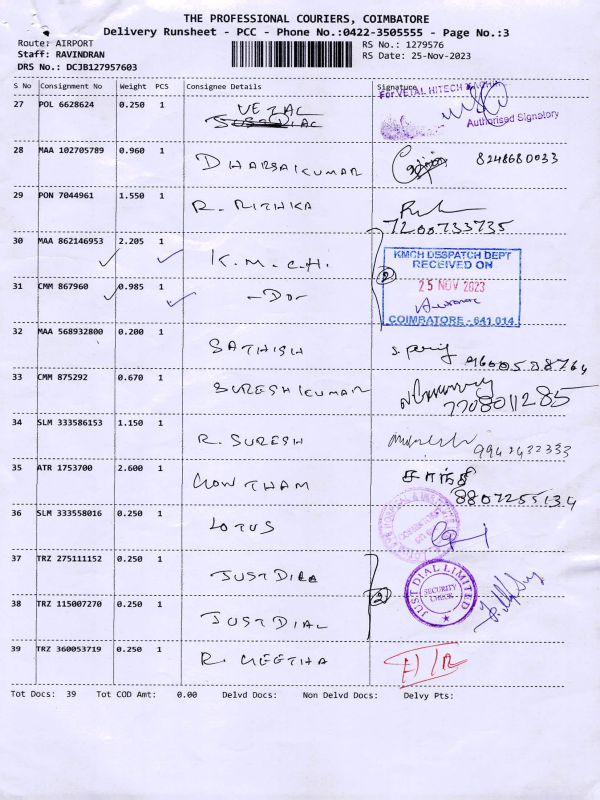 THE PROFESSIONAL COURIERS, COIMBATORE
Delivery Runsheet - PCC - Phone No.:0422-3505555 - Page No.:3
Route: AIRPORT RS No.: 1279576
Staff: RAVINDRAN RS Date: 25-Nov-2023
DRS No.: DCJB127957603
S No Consignment No Weight PCS Consignee Details Signature
For VETAL HITECH
27 POL 6628624 0.250 1 VETAL
Authorised Signatory
28 MAA 102705789 0.960 1 DHARSAIKUMAR 8248680033
29 PON 7044961 1.550 1 R. RITHIKA
7200733735
30 MAA 862146953 2.205 1 K.M.C.H.
KMCH DESPATCH DEPT
RECEIVED ON
31 CMM 867960 0.985 1 -DO- 2
25 NOV 2023
COIMBATORE - 641 014.
32 MAA 568932800 0.200 1 SATHISH
33 CMM 875292 0.670 1 SURESHKUMAR
7708011285
34 SLM 333586153 1.150 1 R. SURESH
9942432333
35 ATR 1753700 2.600 1 GOWTHAM சாந்தி
36 SLM 333558016 0.250 1 LOTUS
37 TRZ 275111152 0.250 1 JUSTDIAL
JUST DIAL LIMITED
SECURITY
CHECK
38 TRZ 115007270 0.250 1 JUSTDIAL 2
39 TRZ 360053719 0.250 1 R. GEETHA
Tot Docs: 39 Tot COD Amt: 0.00 Delvd Docs: Non Delvd Docs: Delvy Pts: